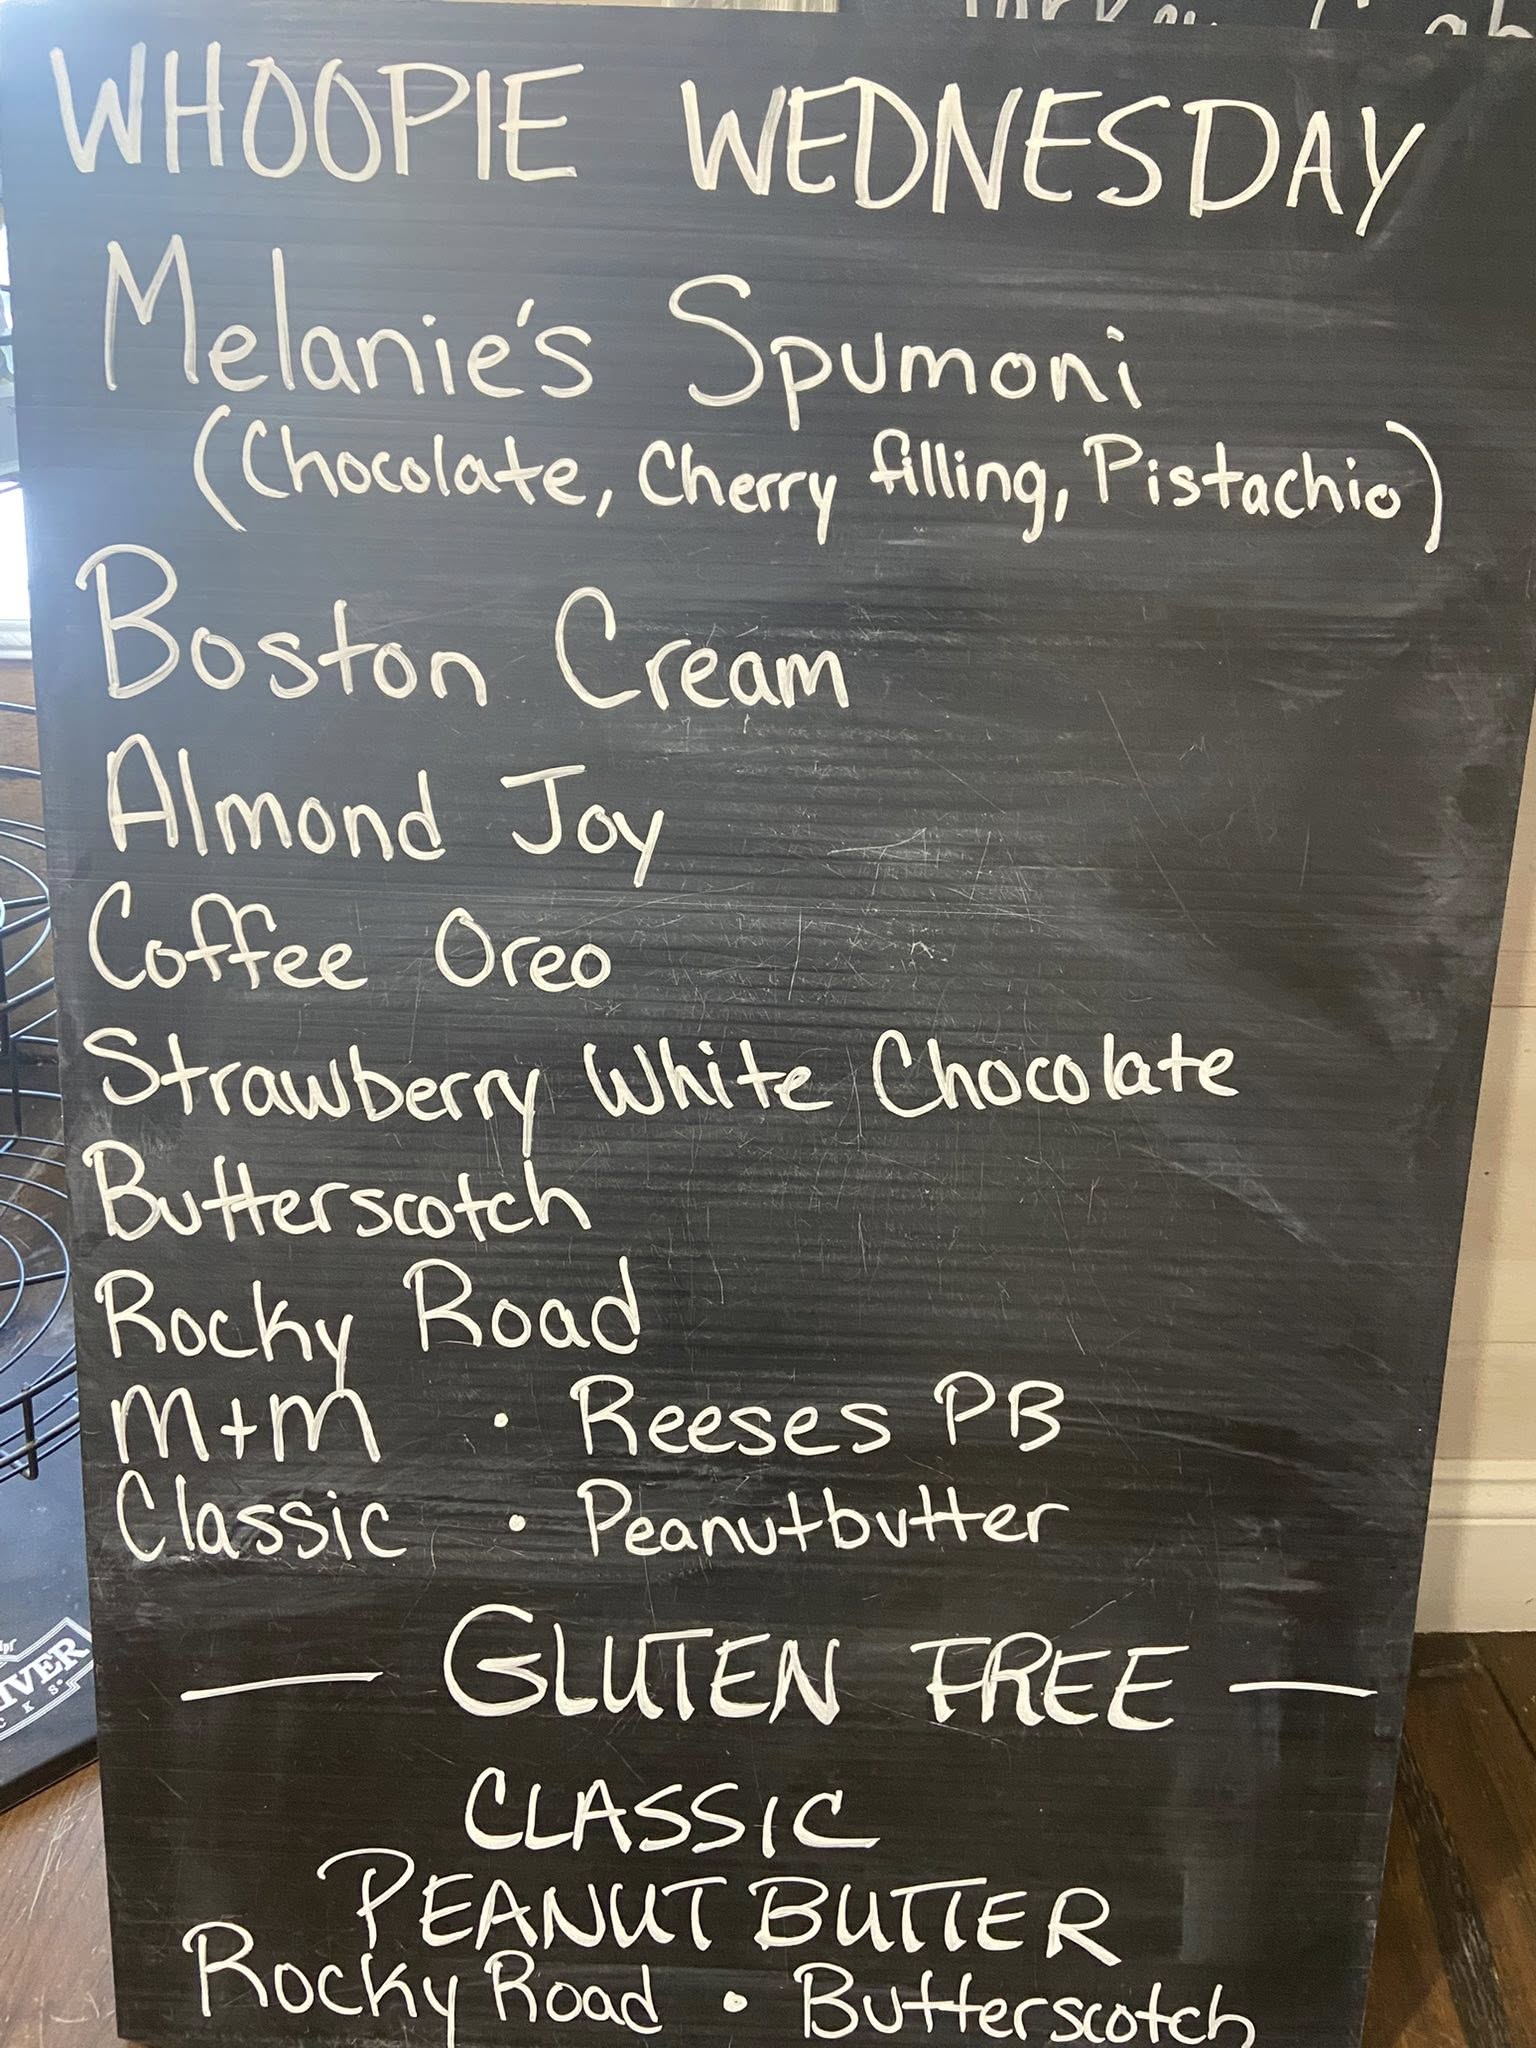 WHOOPIE WEDNESDAY
Melanie's Spumoni
(Chocolate, Cherry filling, Pistachio)
Boston Cream
Almond Joy
Coffee Oreo
Strawberry White Chocolate
Butterscotch
Rocky Road
M+M • Reeses PB
Classic • Peanutbutter
— GLUTEN FREE —
CLASSIC
PEANUT BUTTER
Rocky Road • Butterscotch